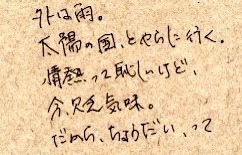 外は雨。
太陽の国、とやらに行く。
情熱って恥しいけど、
今、欠乏気味。
だから、ちょうだい、って